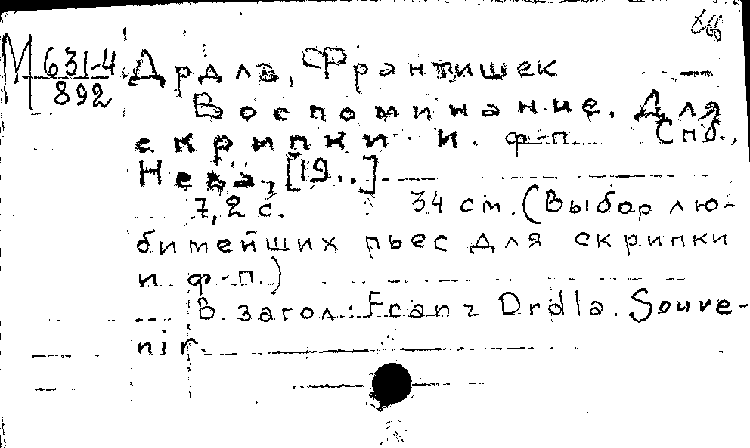 М 631-4 Дрдла, Франтишек
892
Воспоминание. Для
скрипки и ф-п. Спб.,
Нева, [19..].
7, 2 с. 34 см. (Выбор лю-
битейших пьес для скрипки
и ф-п.)
В загол.: Franz Drdla. Souve-
nir.